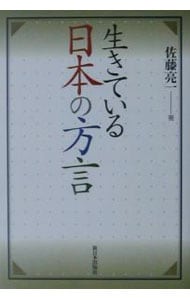 生きている
日本の方言
佐藤亮一 著
新日本出版社